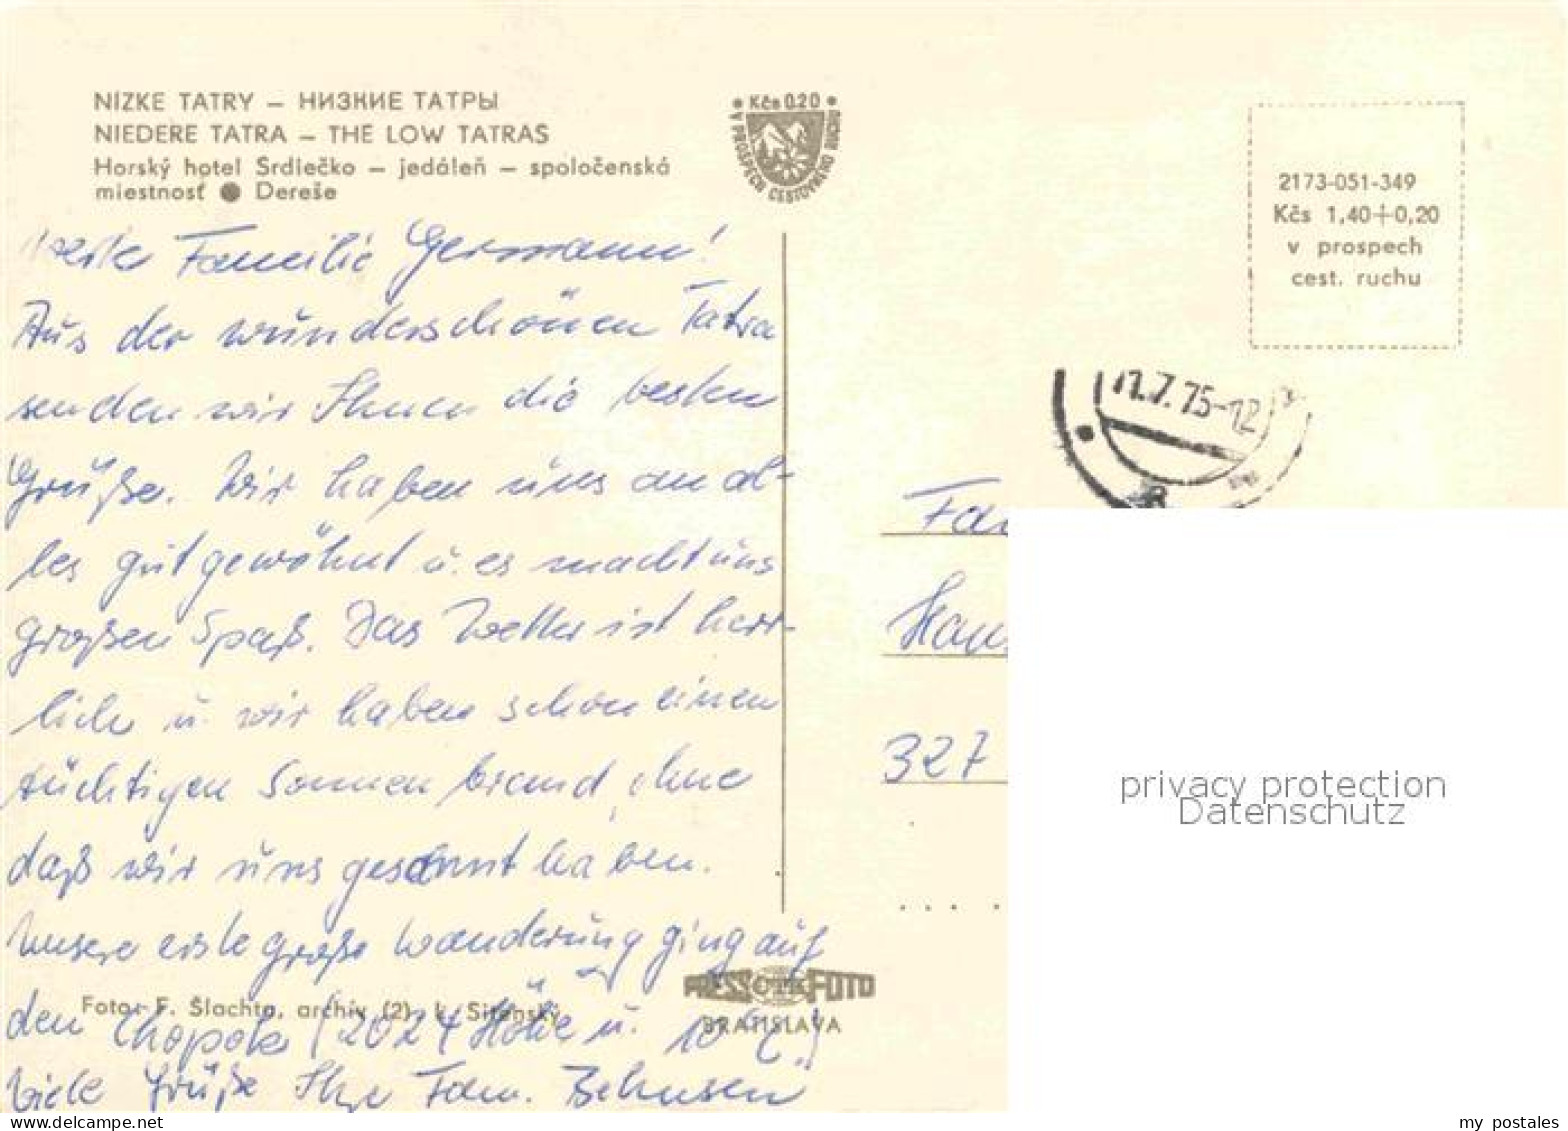 NÍZKE TATRY – НИЗКИЕ ТАТРЫ
NIEDERE TATRA – THE LOW TATRAS
Horský hotel Srdiečko – jedáleň – spoločenská
miestnosť ● Dereše
• Kčs 0.20 •
V PROSPECH CESTOVNÉHO RUCHU
2173-051-349
Kčs 1,40+0,20
v prospech
cest. ruchu
11.7.75-12
Familie Germann!
Aus der wunderschönen Tatra
senden wir Ihnen die besten
Grüße. Wir haben uns an al-
les gut gewöhnt u. es macht uns
großen Spaß. Das Wetter ist herr-
lich u. wir haben schon einen
tüchtigen Sonnenbrand, ohne
daß wir uns gesonnt haben.
Unsere erste große Wanderung ging auf
den Chopok (2024 Höhe u. 10°C!)
Viele Grüße Ihre Fam. Behnsen
Fam
Hans
327
Foto: F. Šlachta, archív (2), k. Sitenský
PRESSFOTO
ČTK
BRATISLAVA
privacy protection
Datenschutz
delcampe.net
my_postales